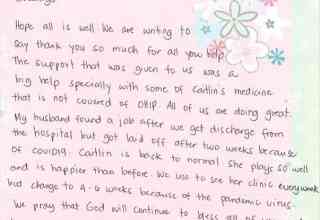 Hope all is well We are writing to
say thank you so much for all you help.
The support that was given to us was a
big help specially with some of Caitlin's medicine
that is not covered of OHIP. All of us are doing great.
My husband found a job after we get discharge from
the hospital but got laid off after two weeks because
of covid19. Caitlin is back to normal she plays so well
and is happier than before. We use to see her clinic every week
but change to 4-6 weeks because of the pandemic virus.
We pray that God will continue to bless all of you